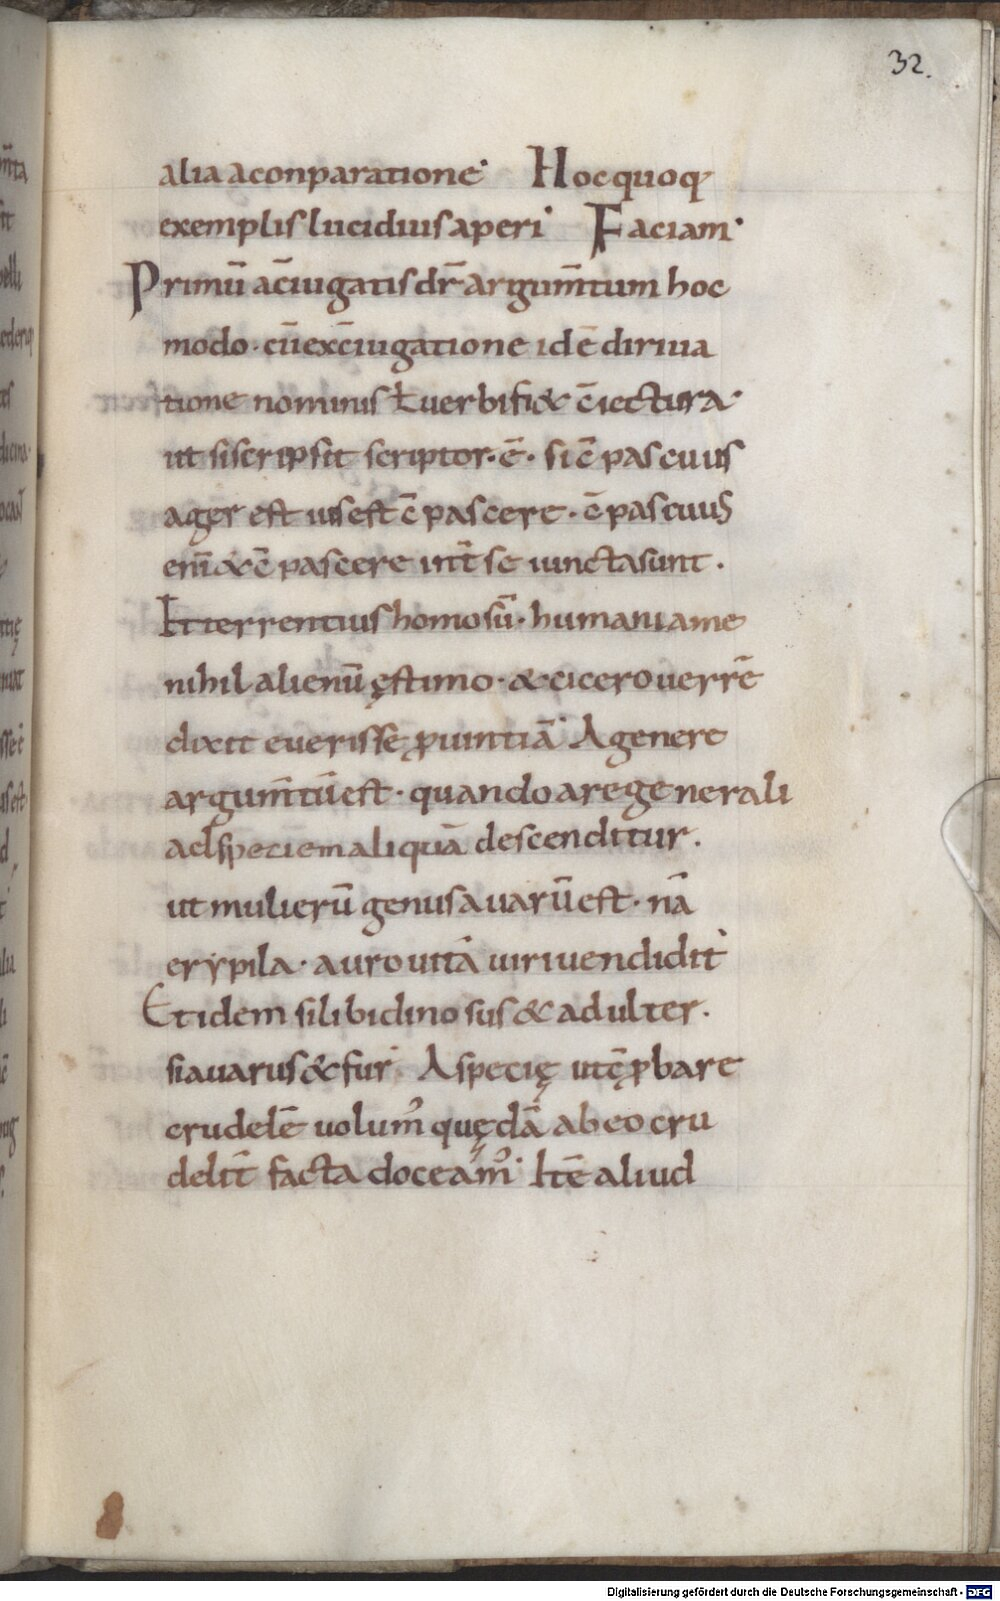 32.
alia aconparatione· Hocquoq;
exemplis lucidius aperi· Faciam·
Primū ac̄iugatis dr̄ argum̄tum hoc
modo· cū exc̄iugatione idē diriua
tione nominis ł uerbi fi& c̄iectura·
ut si scripsit scriptor· ē· si c̄pascuus
ager est us est c̄pascere· c̄pascuus
eni͞ & c̄pascere int̄ se iunctasunt·
Et terrentius homo sū· humani a me
nihil alienū ęstimo· & cicero uerrē
dixit euerisse ꝓuintiā· A genere
argum̄tū est· quando a re generali
ad speciem aliquā descenditur·
ut mulierū genus auarū est· nā
erypila· auro uitā uiri uendidit·
Et idem si libidinosus & adulter·
si auarus & fur· A specię utē ꝓbare
crudelē uolum᾽ quędā ab eo cru
delit̄ facta doceam᾽· Itē aliud
Digitalisierung gefördert durch die Deutsche Forschungsgemeinschaft - DFG